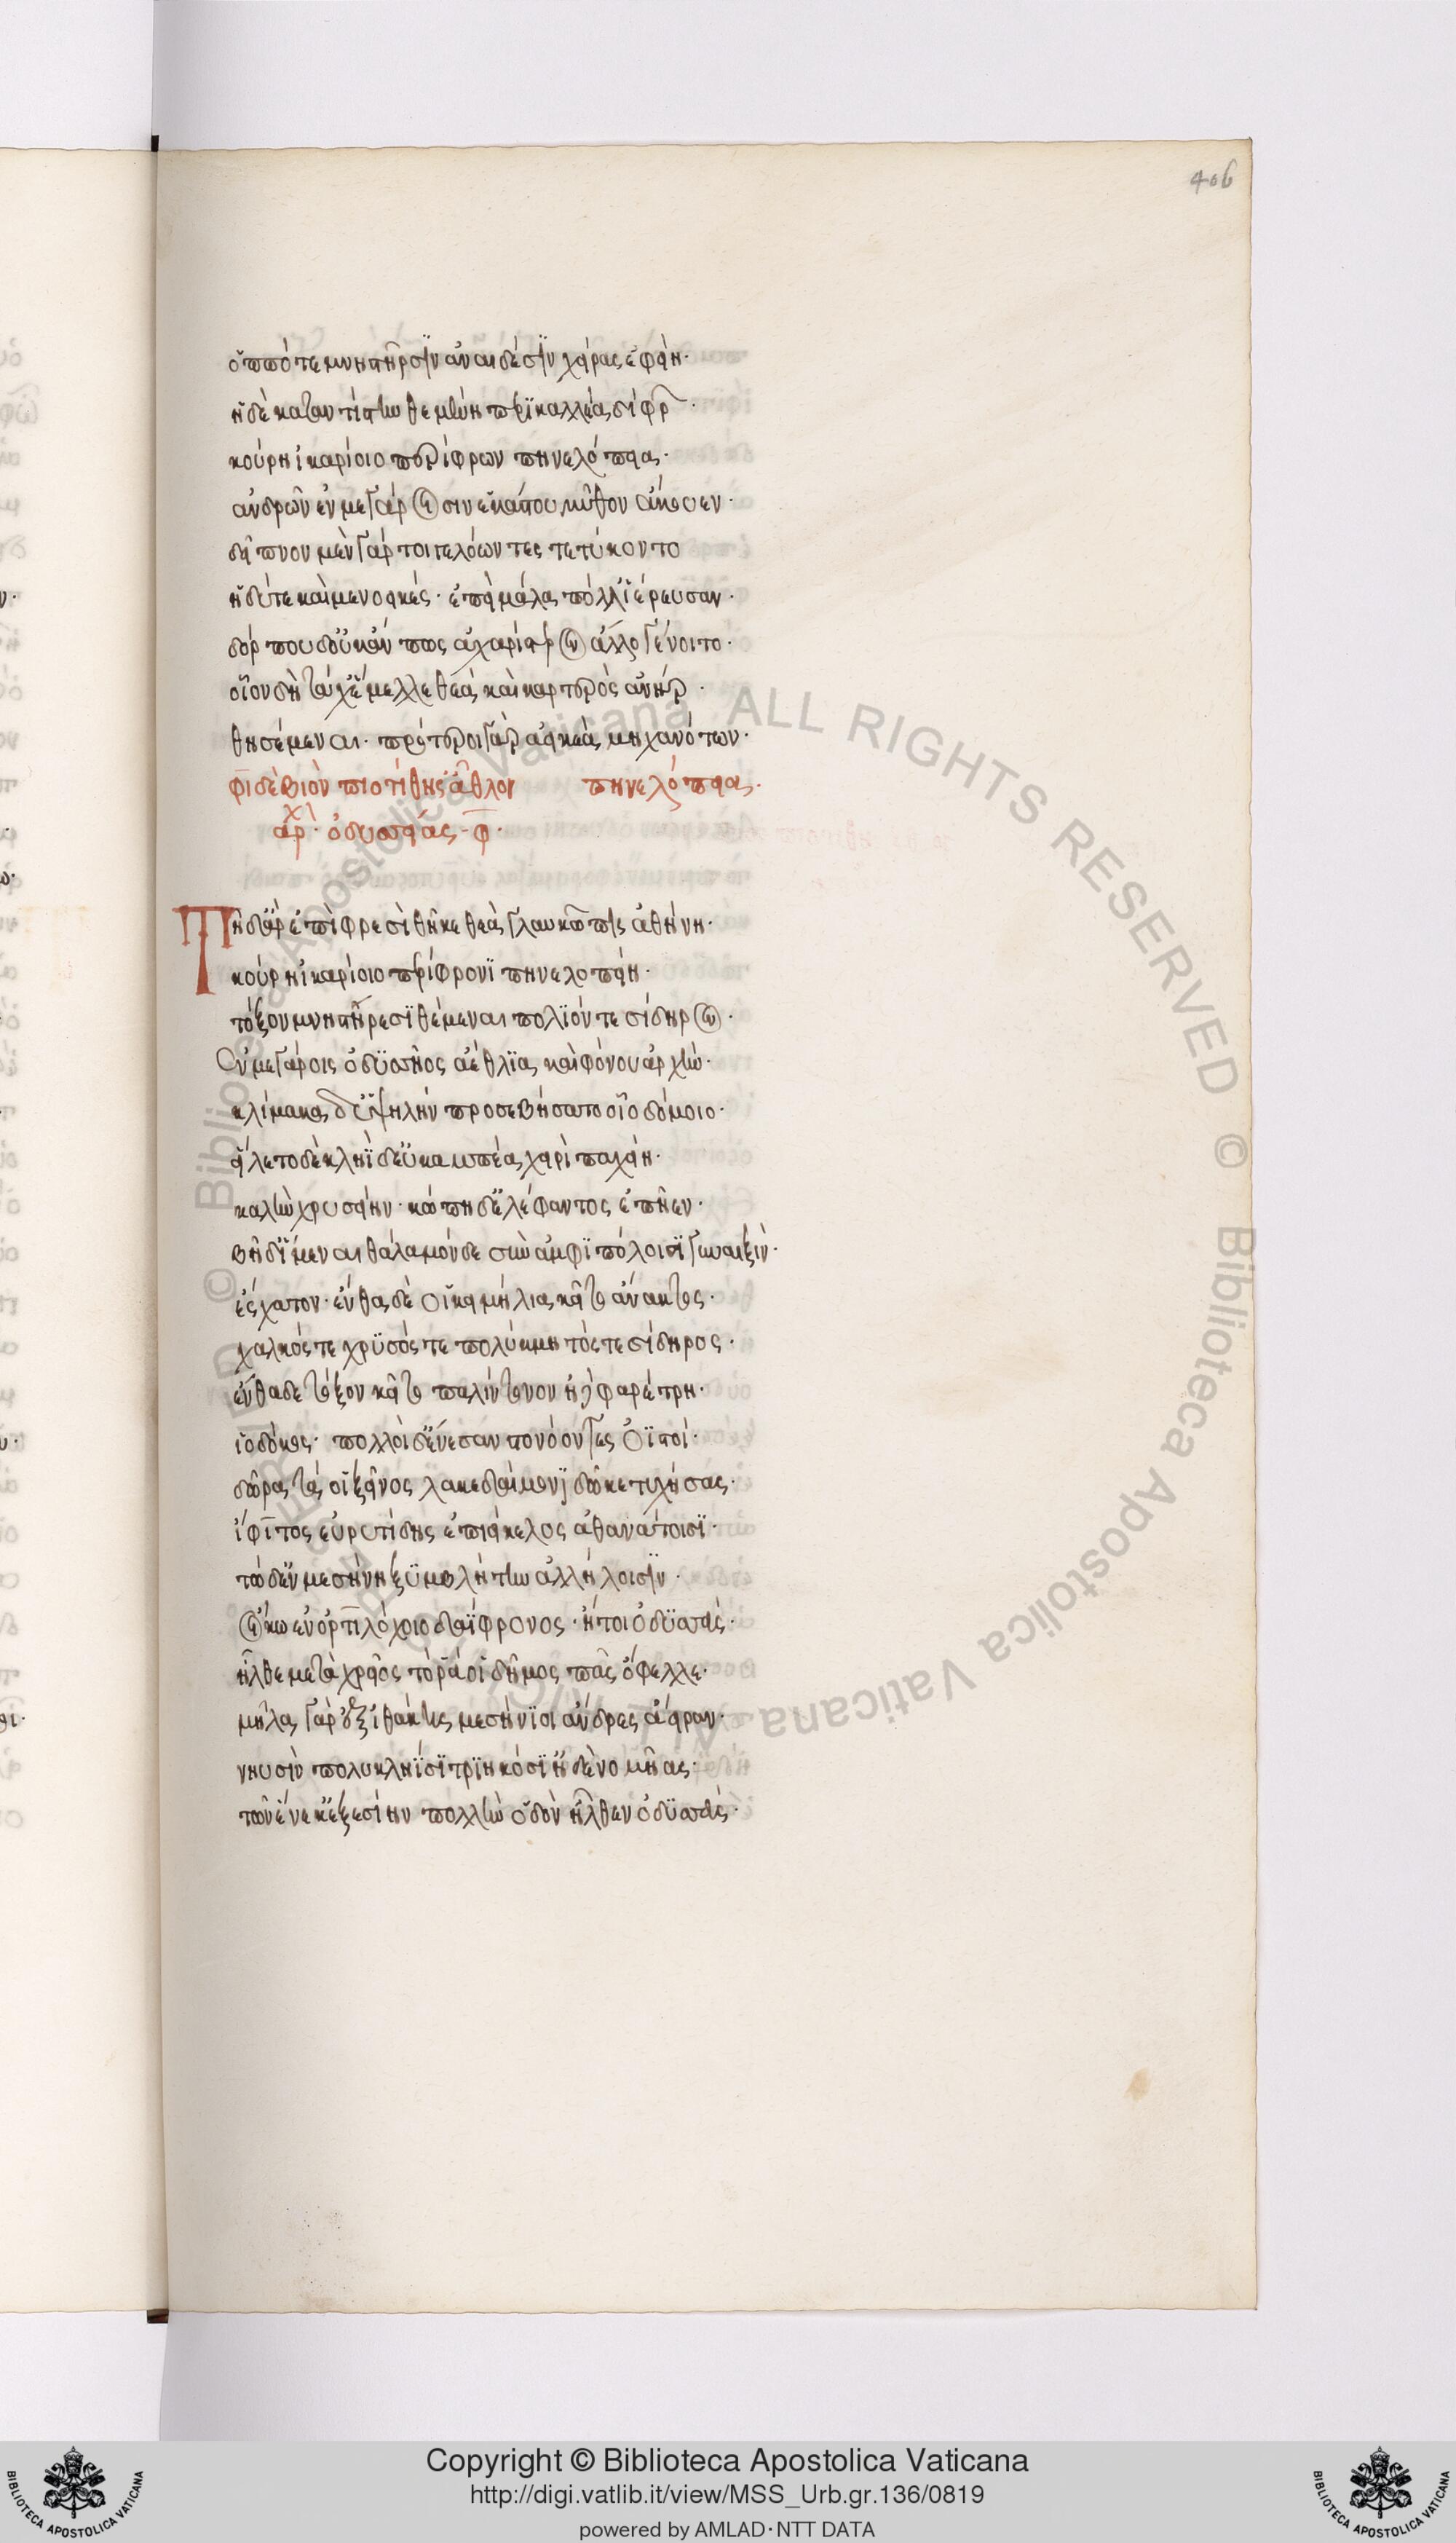 406
ὁππότε μνηστῆρσιν ἀναιδέσιν χεῖρας ἐφείη·
ἡ δὲ κατ' ἄντηστιν θεμένη περικαλλέα δίφρ
κούρη ἰκαρίοιο περίφρων πηνελόπεια·
ἀνδρῶν ἐν μεγάροισιν ἑκάστου μῦθον ἄκουεν·
δεῖπνον μὲν γάρ τοι γελόωντες τετύκοντο
ἡδύ τε καὶ μενοεικές· ἐπεὶ μάλα πόλλ' ἱέρευσαν·
δόρπου δ' οὐκ ἄν πως ἀχαρίστερον ἄλλο γένοιτο·
οἷον δὴ τάχ' ἔμελλε θεὰ καὶ καρτερὸς ἀνήρ·
θησέμεναι· πρότεροι γὰρ ἀεικέα μηχανόωντο·
φῖ δὲ βιὸν προτίθησ' ἆθλον πηνελόπεια·
ἀρχ· ὀδυσσείας· φ·
Τῆ δ' ἄρ' ἐπὶ φρεσὶ θῆκε θεὰ γλαυκῶπις ἀθήνη·
κούρη ἰκαρίοιο περίφρονι πηνελοπείη·
τόξον μνηστήρεσι θέμεναι πολιόν τε σίδηρον·
ἐν μεγάροις ὀδυσῆος ἀέθλια καὶ φόνου ἀρχήν·
κλίμακα δ' ὑψηλὴν προσεβήσατο οἷο δόμοιο·
εἵλετο δὲ κληῖδ' εὐκαμπέα χειρὶ παχείη·
καλὴν χρυσείην· κώπη δ' ἐλέφαντος ἐπῆεν·
βῆ δ' ἴμεναι θάλαμόνδε σὺν ἀμφιπόλοισι γυναιξὶν·
ἔσχατον· ἔνθα δέ οἱ κειμήλια κεῖτο ἄνακτος·
χαλκός τε χρυσός τε πολύκμητός τε σίδηρος·
ἔνθα δὲ τόξον κεῖτο παλίντονον ἠδὲ φαρέτρη·
ἰοδόκος· πολλοὶ δ' ἔνεσαν στονόοντες ὀϊστοί·
δῶρα τά οἱ ξεῖνος λακεδαίμονι δῶκε τυχήσας·
ἴφιτος εὐρυτίδης ἐπιείκελος ἀθανάτοισι·
τὼ δ' ἐν μεσήνη ξυμβλήτην ἀλλήλοισιν·
οἴκω ἐν ὀρτιλόχοιο δαΐφρονος· ἤτοι ὀδυσσεὺς·
ἦλθε μετὰ χρεῖος τό ῥά οἱ δῆμος πᾶς ὄφελλε·
μῆλα γὰρ ἐξ ἰθάκης μεσήνιοι ἄνδρες ἄειραν·
νηυσὶν πολυκλήϊσι τριηκόσι' ἠδὲ νομῆας·
τῶν ἕνεκ' ἐξεσίην πολλὴν ὁδὸν ἦλθεν ὀδυσσεὺς·
© Biblioteca Apostolica Vaticana ALL RIGHTS RESERVED
Copyright © Biblioteca Apostolica Vaticana
http://digi.vatlib.it/view/MSS_Urb.gr.136/0819
powered by AMLAD·NTT DATA
BIBLIOTECA APOSTOLICA VATICANA
BIBLIOTECA APOSTOLICA VATICANA